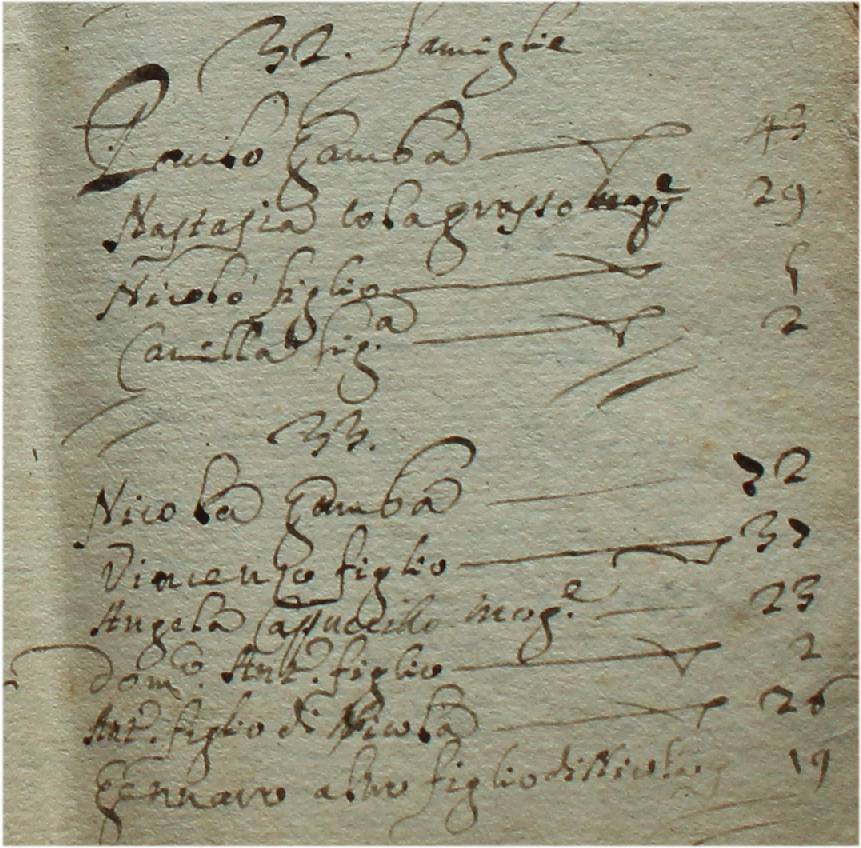 32. famiglie
Paulo Gamba 43
Nastasia Colagrosso mog.e 29
Nicolò figlio 5
Camilla fig.a 2
33.
Nicola Gamba 72
Vincenzo figlio 37
Angela Cappuccillo mog.e 23
Dom.co Ant.o figlio 2
Ant.o figlio di Nicola 26
Gennaro altro figlio di Nicola 19